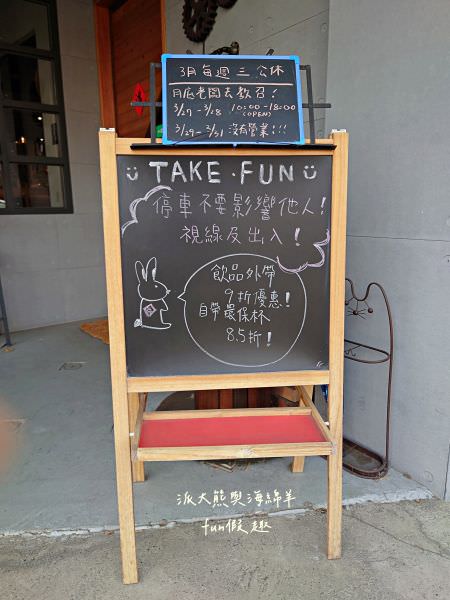 3月每週三公休
月底老闆去教召!
3/27-3/28 10:00-18:00
(OPEN)
3/29-3/31 沒有營業!!!
TAKE·FUN
停車不要影響他人!
視線及出入!
飲品外帶
9折優惠!
自帶環保杯
8.5折!
派大熊與海綿羊
fun假趣